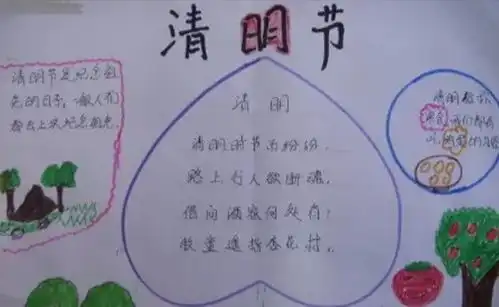 清明节
清明节是纪念祖
先的日子，一般人们
都去上坟纪念祖先
清明
清明时节雨纷纷，
路上行人欲断魂。
借问酒家何处有？
牧童遥指杏花村。
清明
我们都有
吃
的习俗